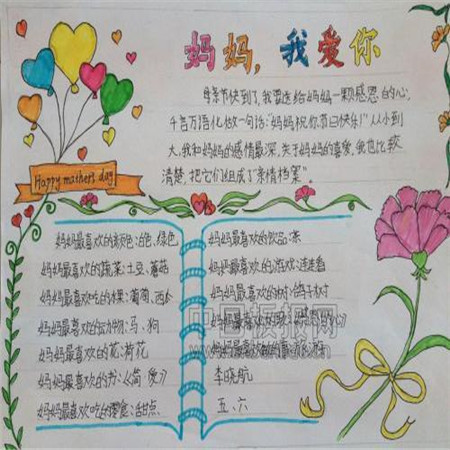 妈妈，我爱你
母亲节快到了，我要送给妈妈一颗感恩的心，
千言万语化做一句话："妈妈祝你节日快乐！"从小到
大，我和妈妈的感情最深，关于妈妈的喜爱，我也比较
清楚，把它们组成了"亲情档案"。
Happy mother's day
妈妈最喜欢的颜色：白色、绿色
妈妈最喜欢的蔬菜：土豆、蘑菇
妈妈最喜欢吃的水果：葡萄、西
妈妈最喜欢的动物：马、狗
妈妈最喜欢的花：荷花
妈妈最喜欢的书：
妈妈最喜欢吃的零食：甜点
妈妈最喜欢的饮品：茶
妈妈最喜欢的游戏：连连看
妈妈最喜欢的树：
妈妈最喜欢
妈妈最喜欢
李晓航
五、六